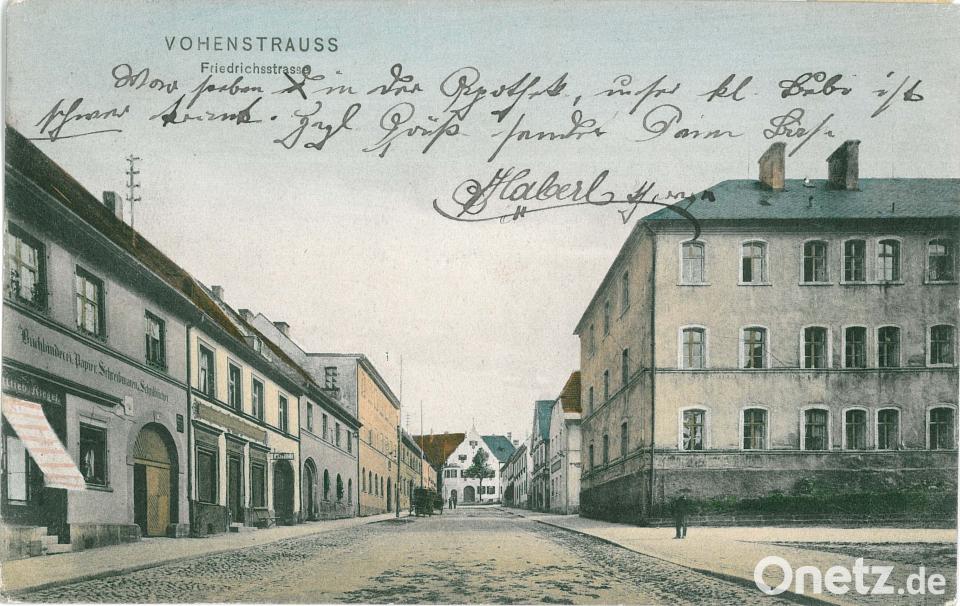 VOHENSTRAUSS
Friedrichsstrasse
War soeben in der Apothek, unser kl. Bebi ist
schwer krank. Hzgl Grüße sendet
Haberl
Buchbinderei, Papier, Schreibwaren, Schulbücher
Onetz.de